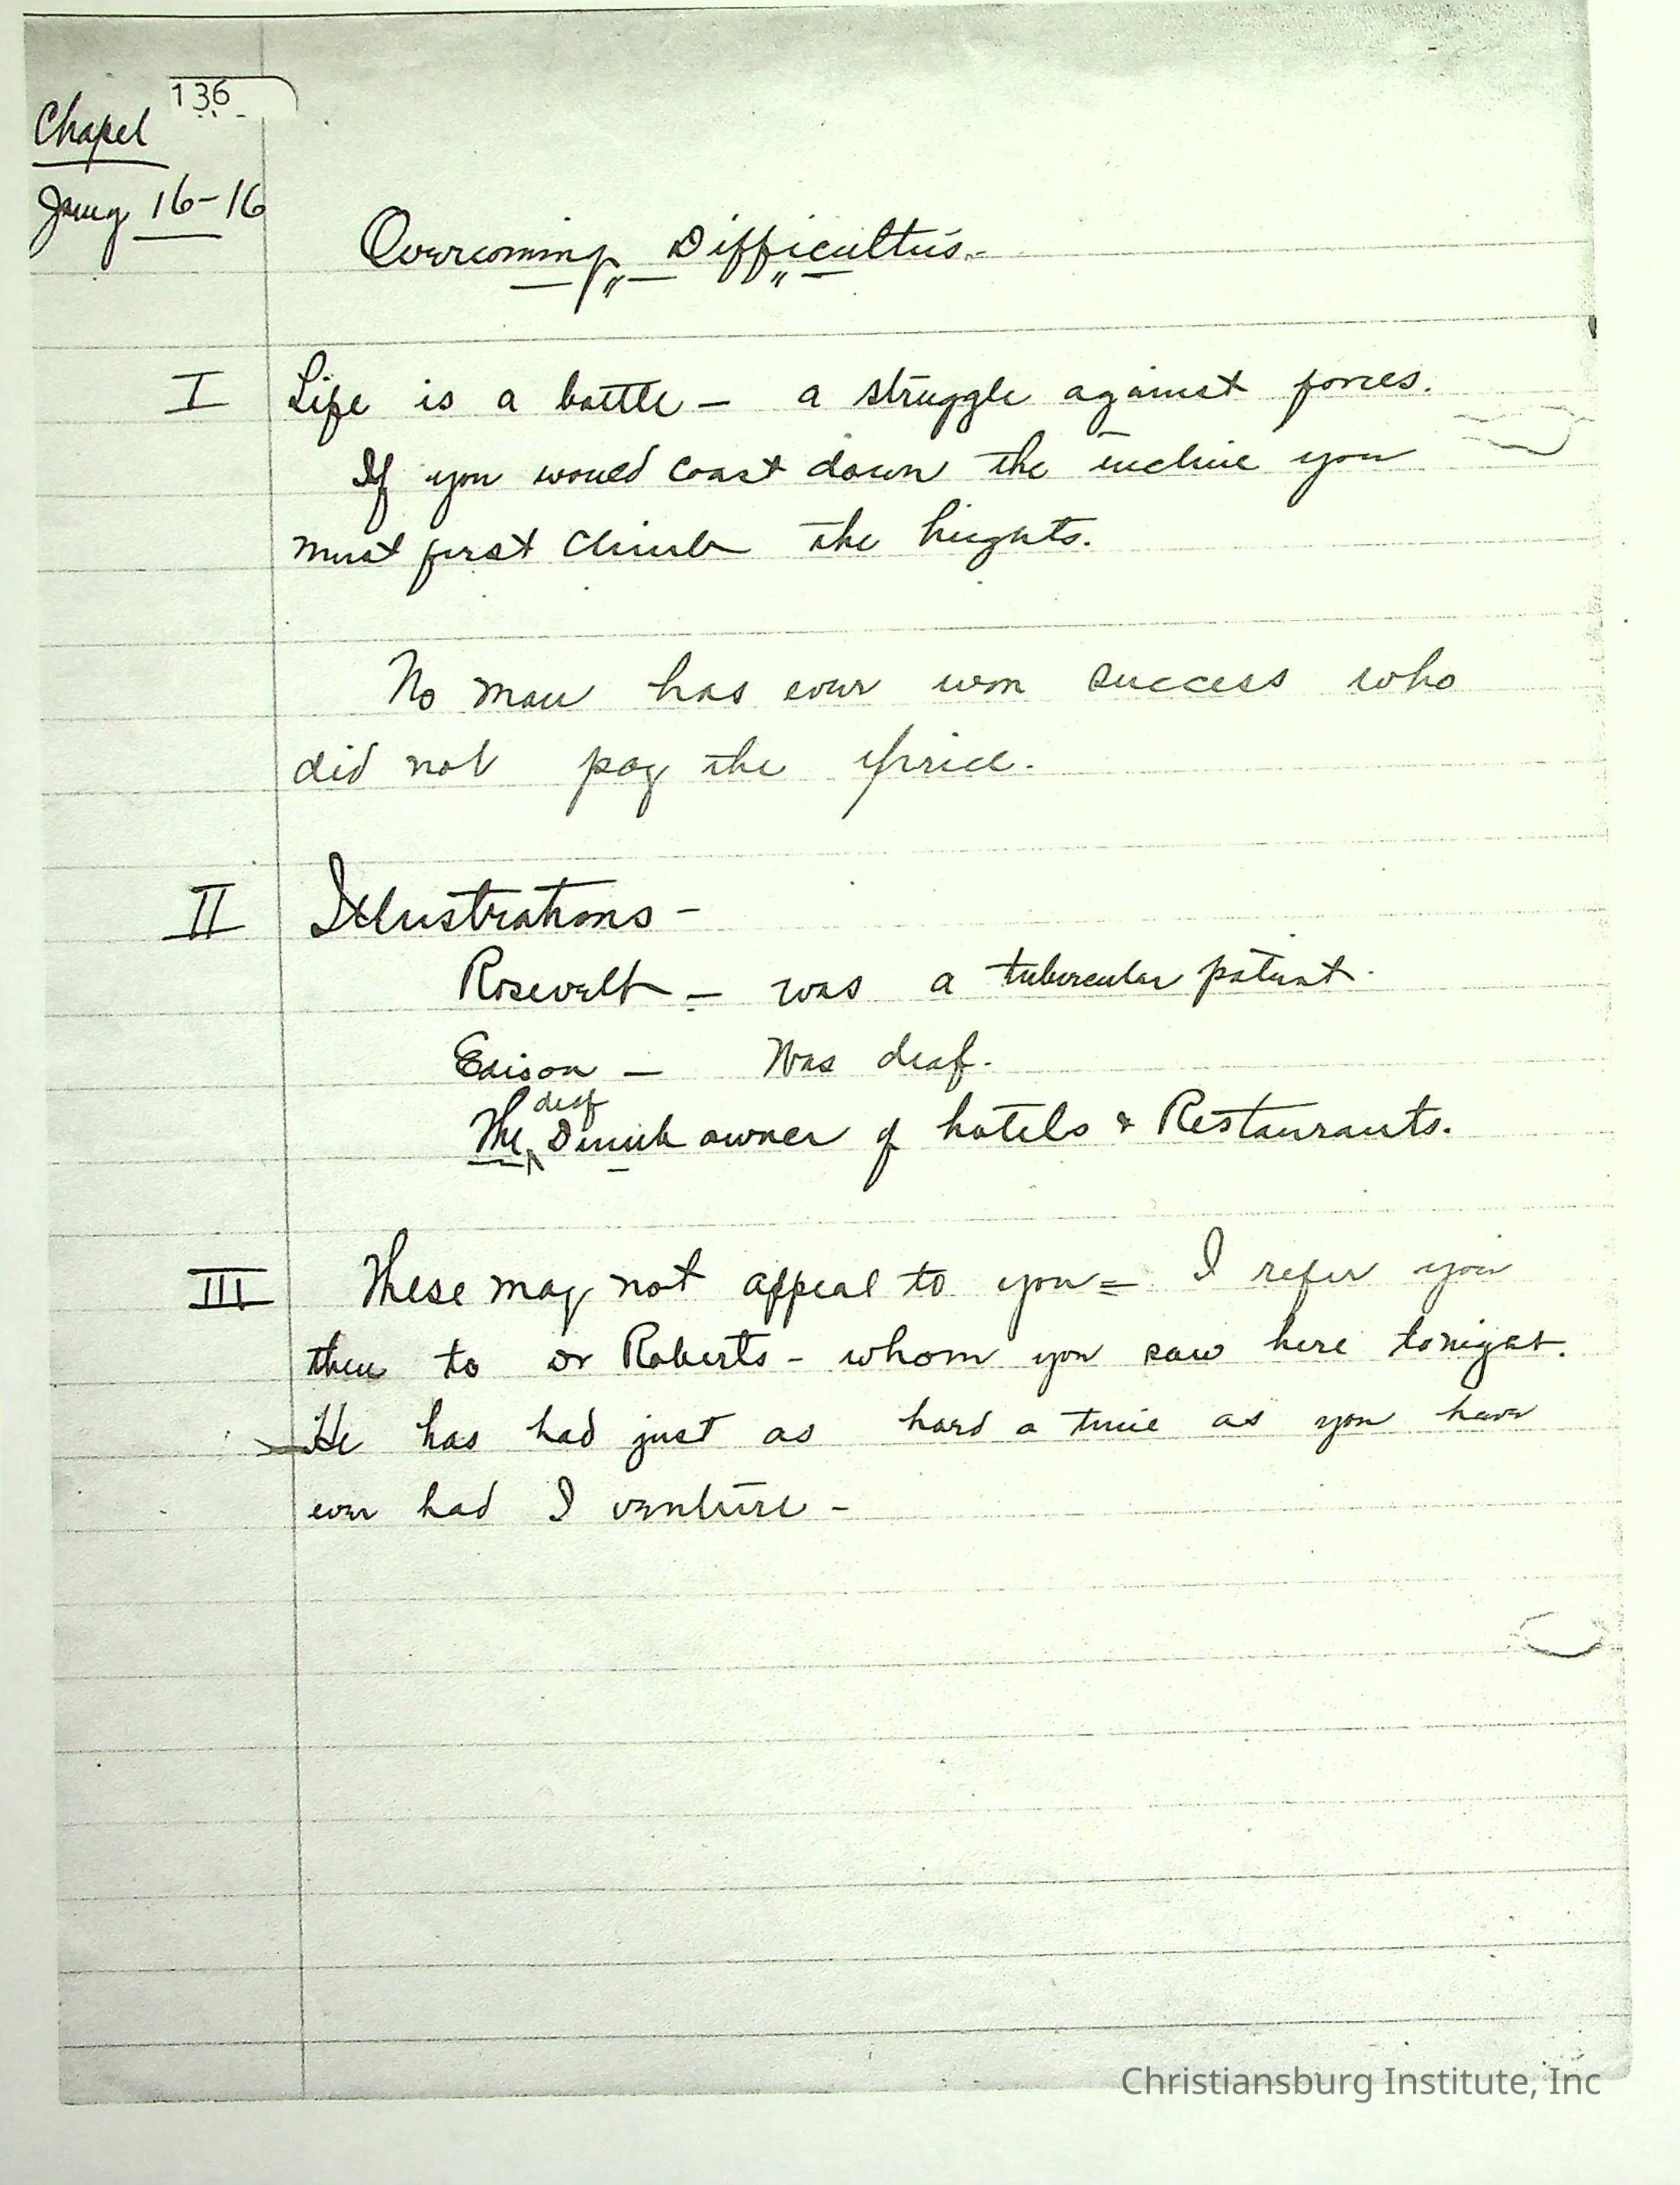 136
Chapel
Jany 16-16
Overcoming Difficulties.-
I Life is a battle - a struggle against forces.
If you would coast down the incline you
must first climb the hights.
No man has ever won success who
did not pay the price.
II Illustrations -
Rosevelt - was a tubercular patient.
Edison - Was deaf.
deaf
The Dumb owner of hotels & Restaurants.
III These may not appeal to you = I refer you
then to Dr Roberts - whom you saw here tonight.
He has had just as hard a time as you have
ever had I venture -
Christiansburg Institute, Inc